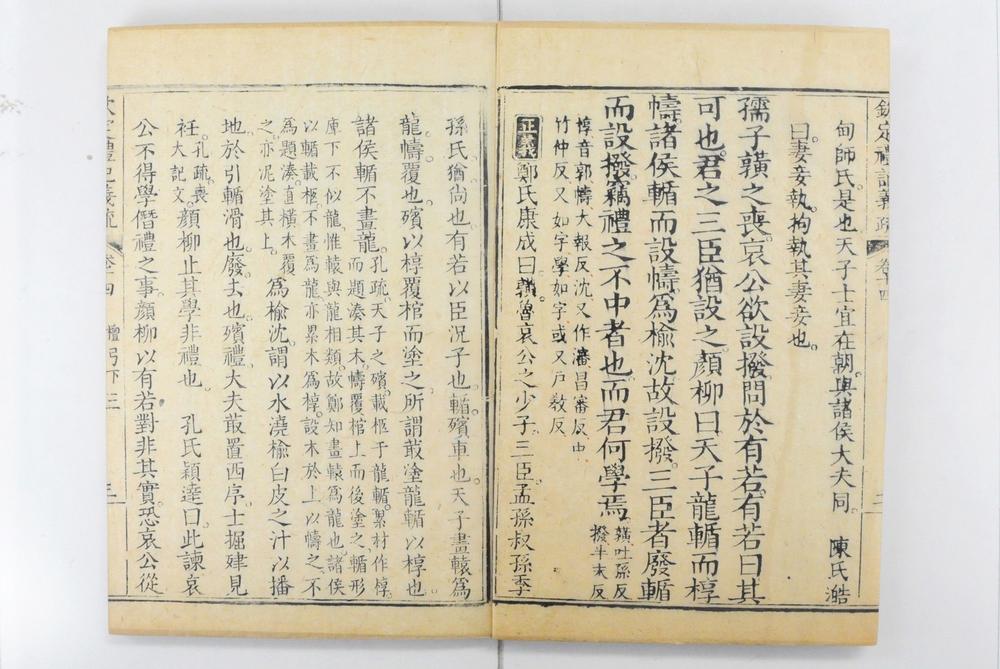 欽定禮記義疏 卷十四 三
甸師氏是也天子士宜在朝與諸侯大夫同 陳氏澔
曰妻妾執拘執其妻妾也
孺子䵍之喪哀公欲設撥問於有若有若曰其
可也君之三臣猶設之顏柳曰天子龍輴而椁
幬諸侯輴而設幬爲榆沈故設撥三臣者廢輴
而設撥竊禮之不中者也而君何學焉 䵍吐孫反 撥半末反
椁音郭幬大報反沈又作瀋昌審反中
竹仲反又如字學如字或又戶敎反
正義 鄭氏康成曰䵍魯哀公之少子三臣孟孫叔孫季
孫氏猶尚也有若以臣況子也輴殯車也天子畫轅爲
龍幬覆也殯以椁覆棺而塗之所謂菆塗龍輴以椁也
諸侯輴不畫龍 孔疏天子之殯載柩于龍輴累材作椁
而題湊其木幬覆棺上而後塗之輴形
庳下不似龍惟轅與龍相類故鄭知畫轅爲龍也諸侯
以輴載柩不畫爲龍亦累木爲椁設木於上以幬之不
爲題湊直橫木覆
之亦泥塗其上 爲榆沈謂以水澆榆白皮之汁以播
地於引輴滑也廢去也殯禮大夫菆置西序士掘肂見
衽 孔疏喪
大記文 顏柳止其學非禮也 孔氏穎達曰此諫哀
公不得學僭禮之事顏柳以有若對非其實恐哀公從
欽定禮記義疏 卷十四 檀弓下 三